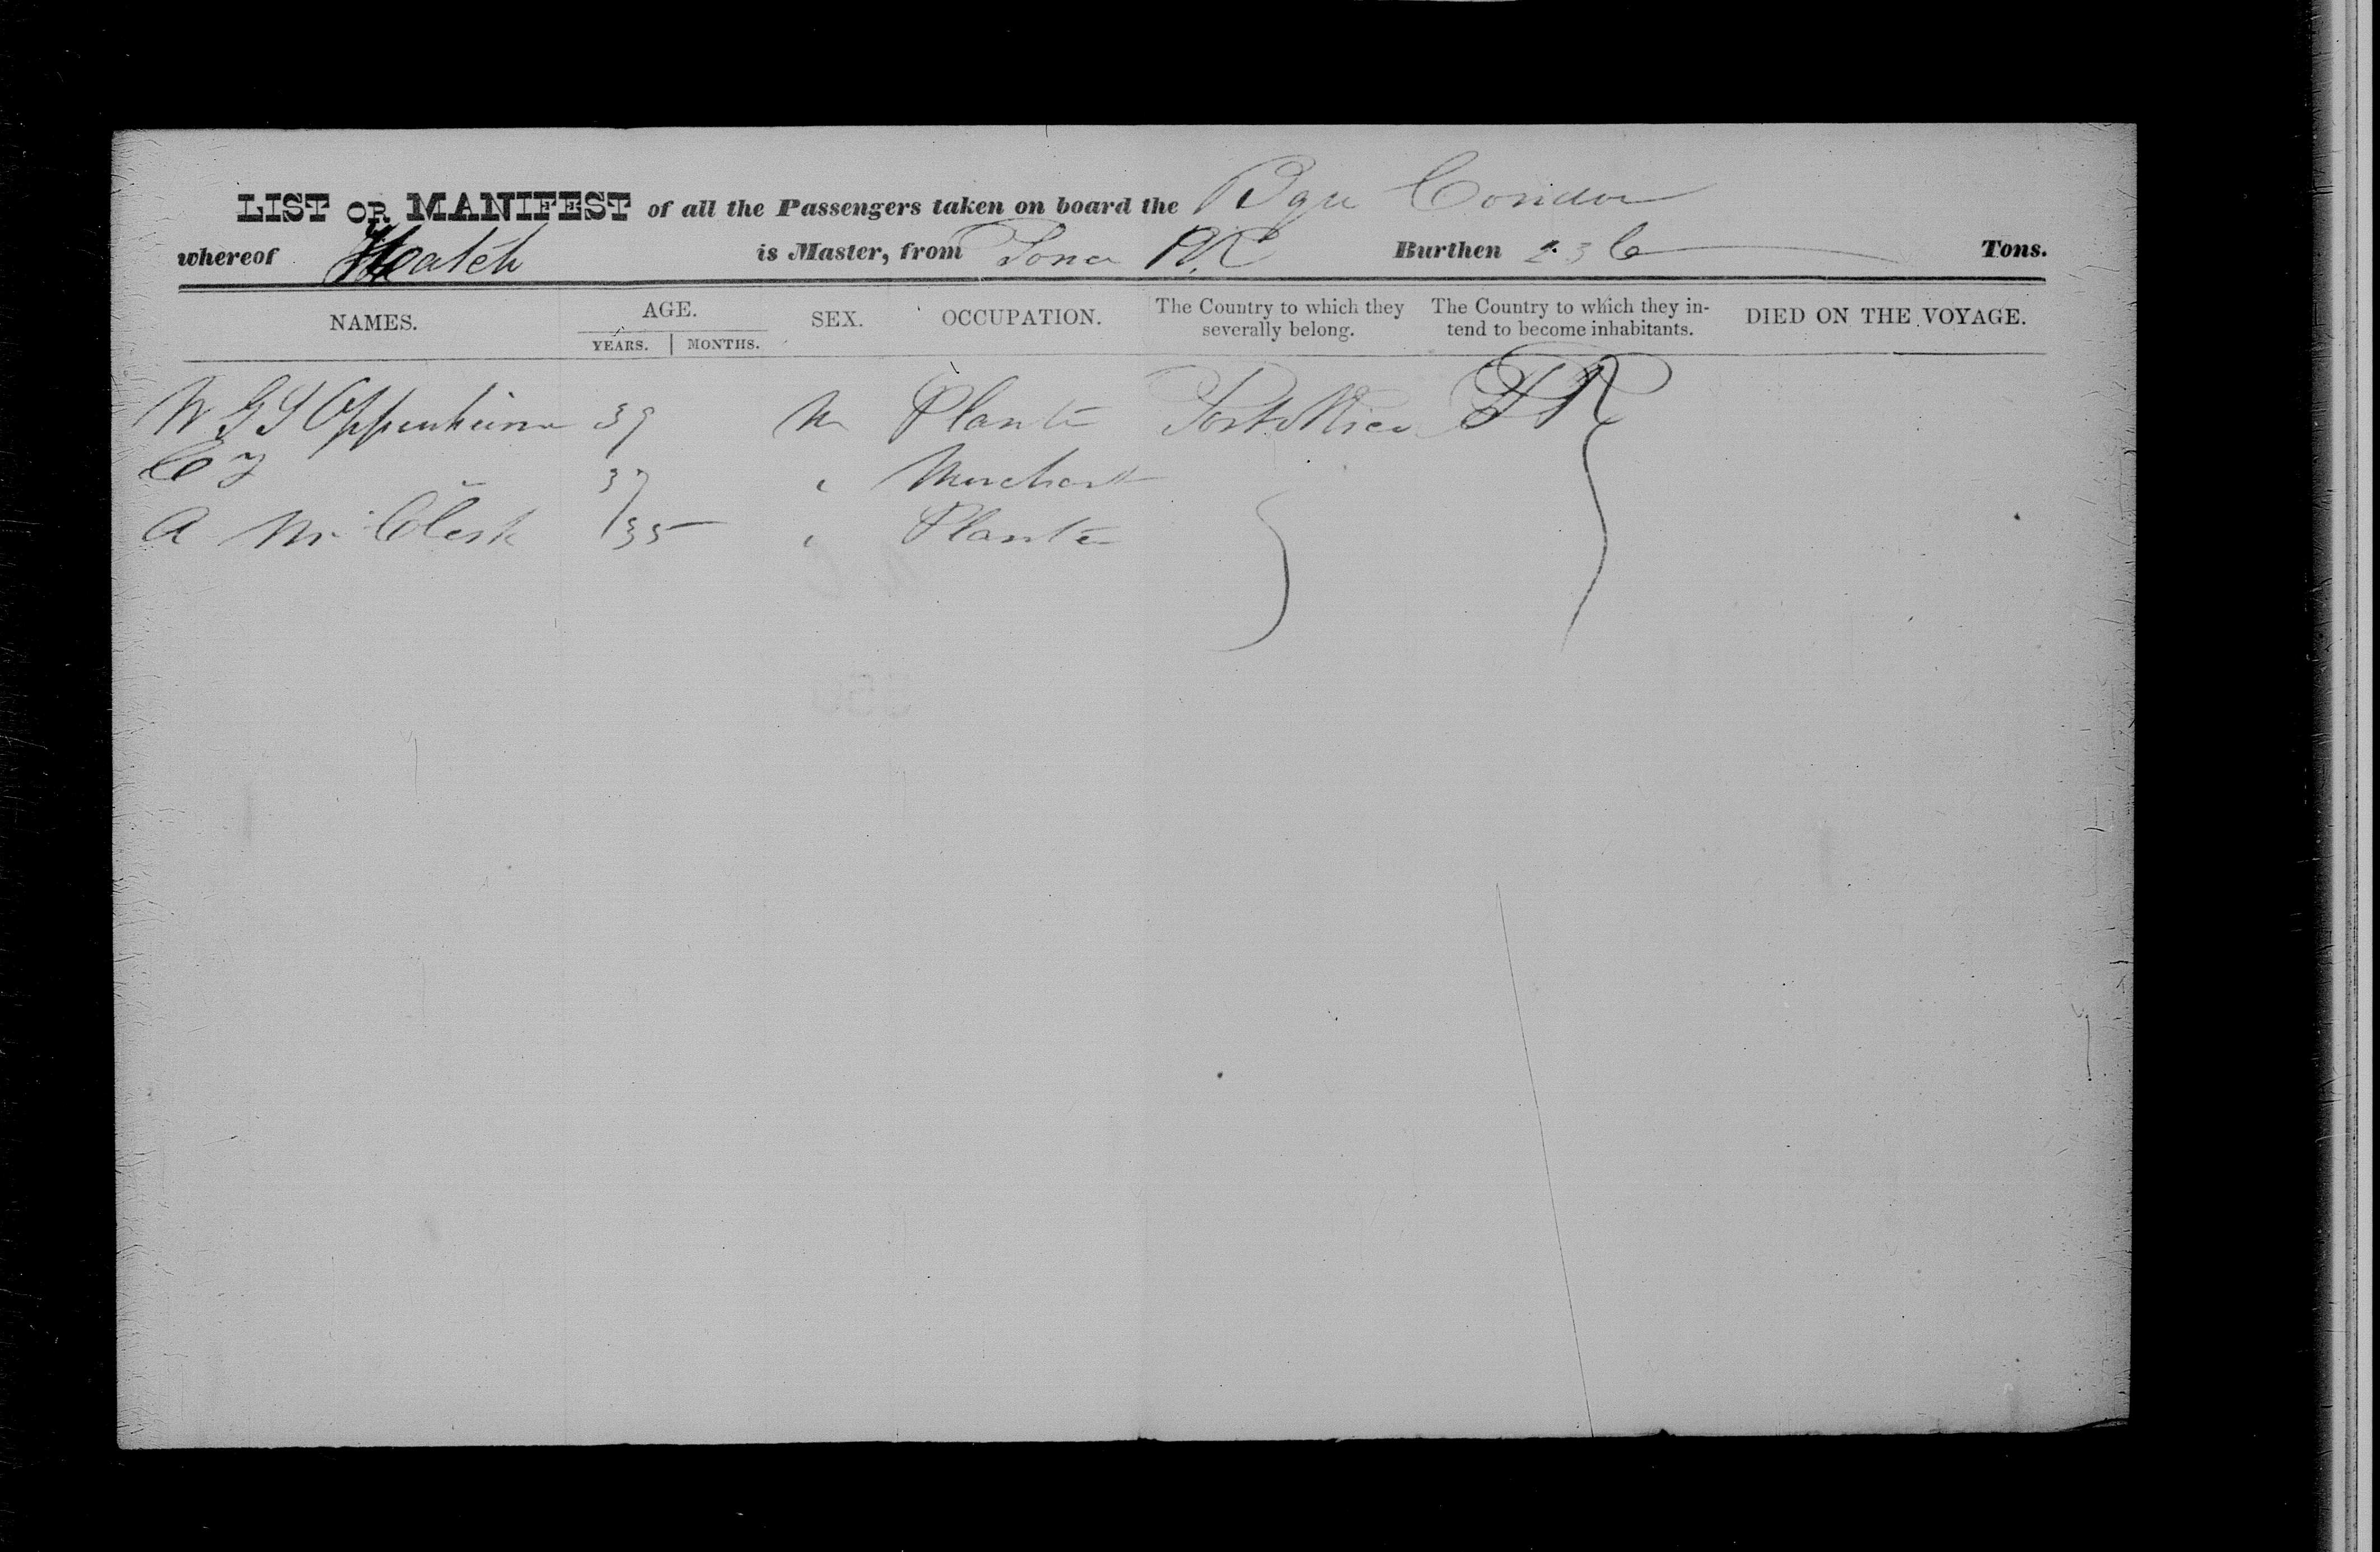 LIST OR MANIFEST of all the Passengers taken on board the Bque Condor
whereof Heatch is Master, from Ponce P.R Burthen 236 Tons.
NAMES. AGE. YEARS. MONTHS. SEX. OCCUPATION. The Country to which they severally belong. The Country to which they intend to become inhabitants. DIED ON THE VOYAGE.
W G S Oppenheimer 39 M Planter Porto Rico P R
C F " 37 " Merchant
A Mc Clesk 35 " Planter